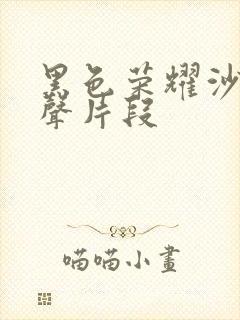 黑色荣耀沙
聲片段
喵喵小畫